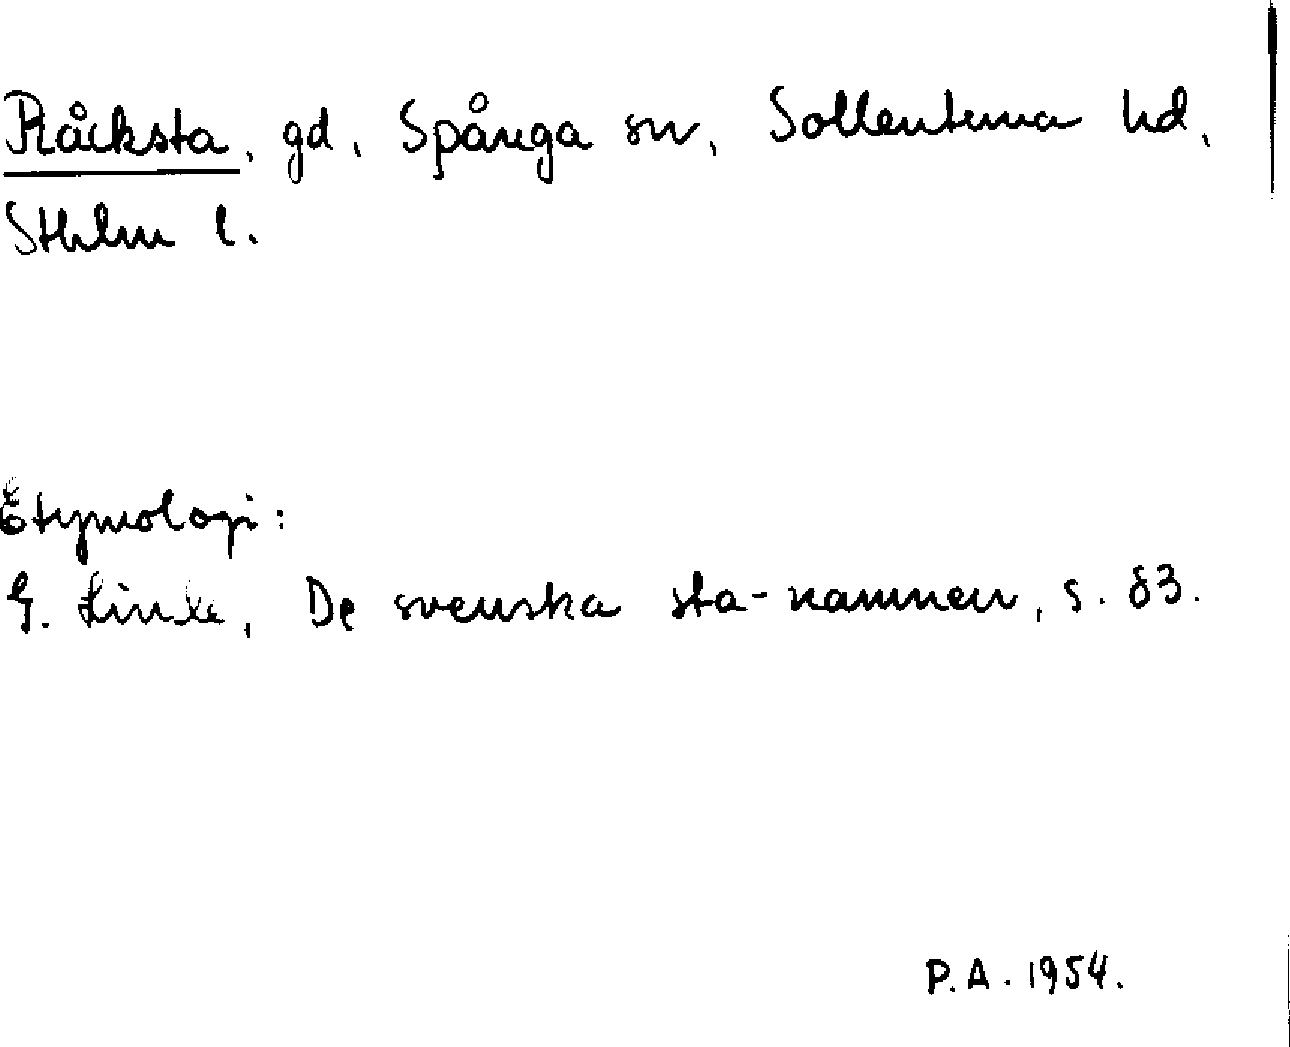 Råcksta, gd, Spånga sn, Sollentuna hd,
Sthlm l.
Etymologi:
G. Linde, De svenska sta-namnen, s. 83.
P.A. 1954.